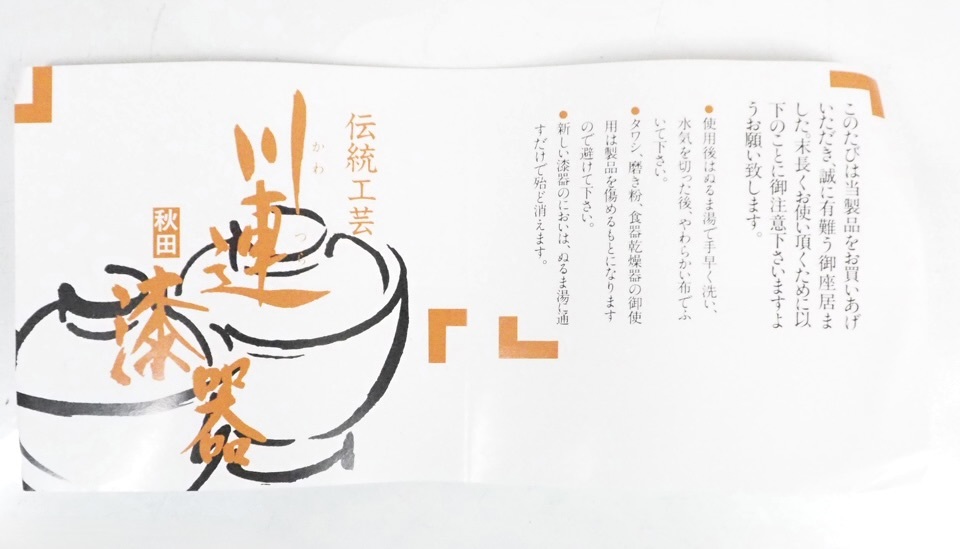 このたびは当製品をお買いあげ
いただき、誠に有難う御座居ま
した。末長くお使い頂くために以
下のことに御注意下さいますよ
うお願い致します。
●使用後はぬるま湯で手早く洗い、
水気を切った後、やわらかい布でふ
いて下さい。
●タワシ、磨き粉、食器乾燥器の御使
用は製品を傷めるもとになります
ので避けて下さい。
●新しい漆器のにおいは、ぬるま湯に通
すだけで殆ど消えます。
伝統工芸
川連
かわ
つら
漆器
秋田